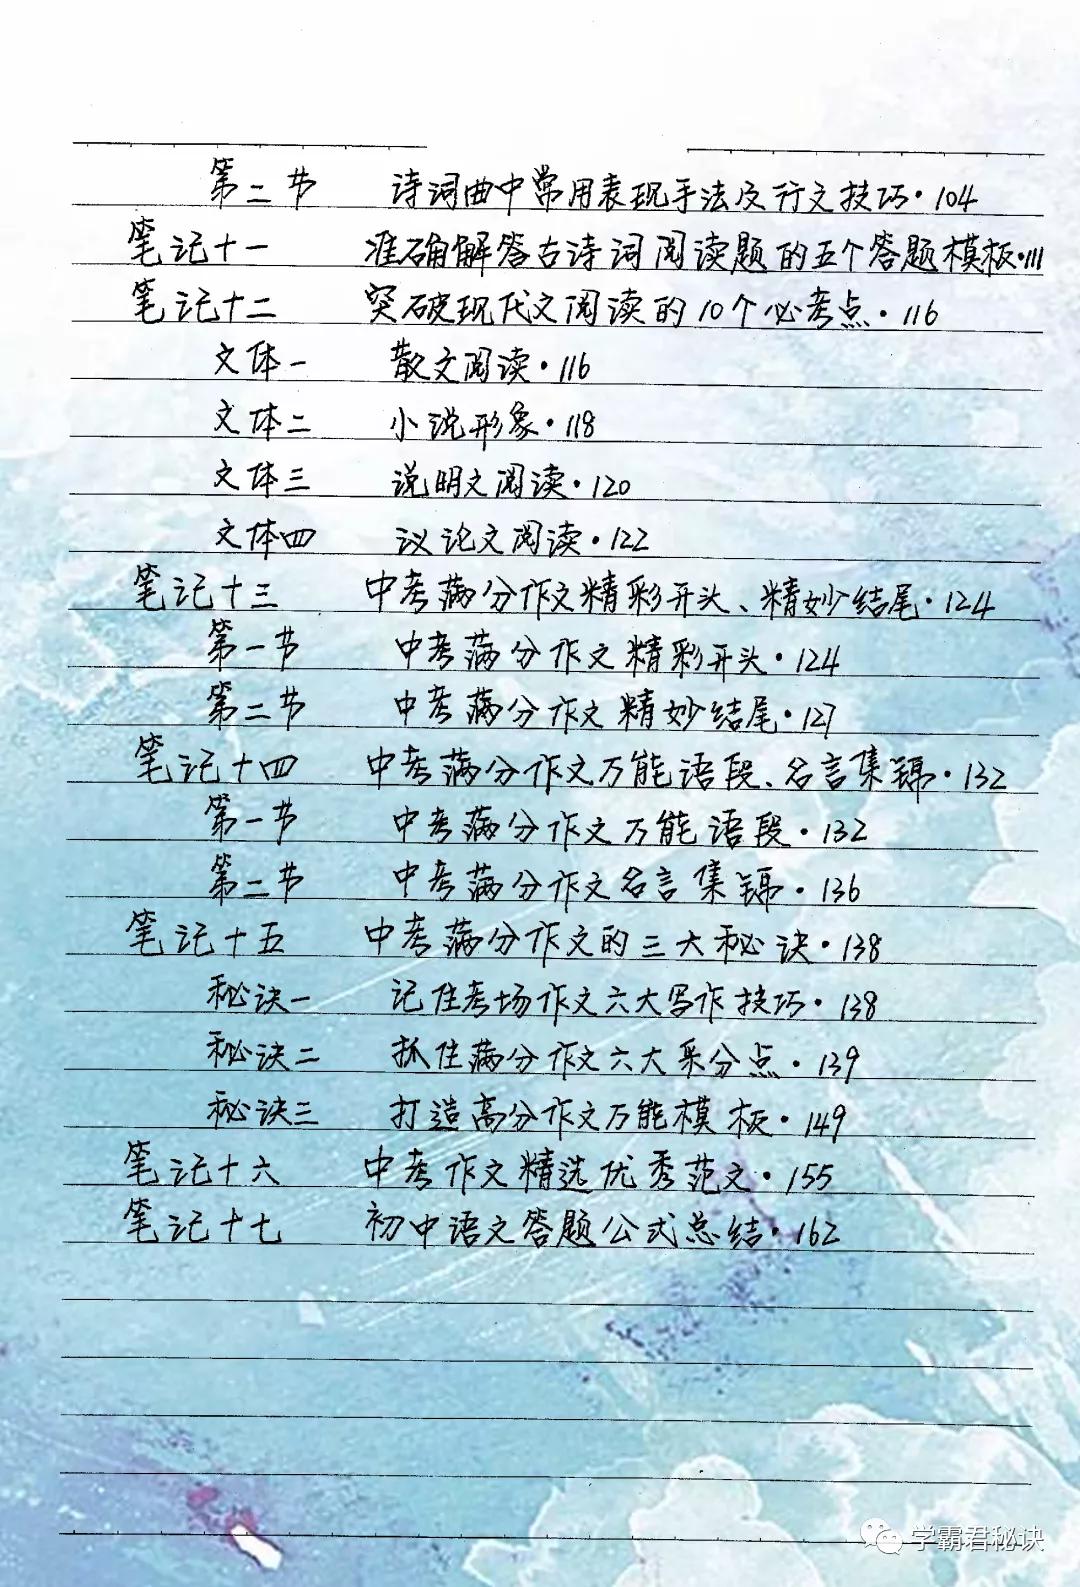 第二节 诗词曲中常用表现手法及行文技巧·104
笔记十一 准确解答古诗词阅读题的五个答题模板·111
笔记十二 突破现代文阅读的10个必考点·116
文体一 散文阅读·116
文体二 小说形象·118
文体三 说明文阅读·120
文体四 议论文阅读·122
笔记十三 中考满分作文精彩开头、精妙结尾·124
第一节 中考满分作文精彩开头·124
第二节 中考满分作文精妙结尾·127
笔记十四 中考满分作文万能语段、名言集锦·132
第一节 中考满分作文万能语段·132
第二节 中考满分作文名言集锦·136
笔记十五 中考满分作文的三大秘诀·138
秘诀一 记住考场作文六大写作技巧·138
秘诀二 抓住满分作文六大采分点·139
秘诀三 打造高分作文万能模板·149
笔记十六 中考作文精选优秀范文·155
笔记十七 初中语文答题公式总结·162
学霸君秘诀